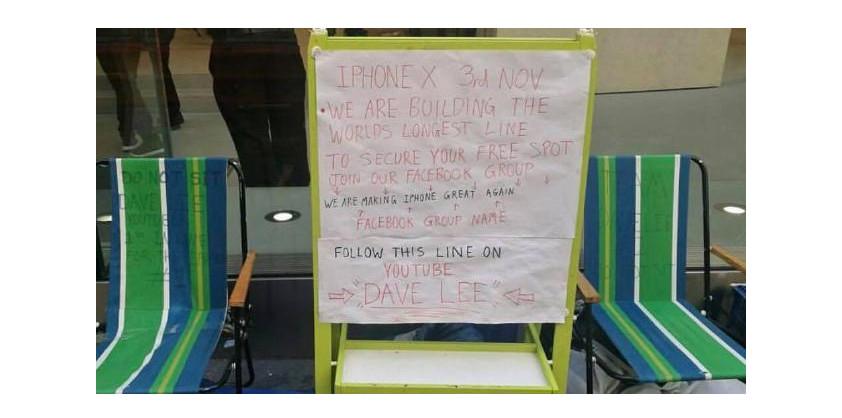 IPHONE X 3rd NOV
• WE ARE BUILDING THE
WORLDS LONGEST LINE
TO SECURE YOUR FREE SPOT
JOIN OUR FACEBOOK GROUP
WE ARE MAKING IPHONE GREAT AGAIN
FACEBOOK GROUP NAME
FOLLOW THIS LINE ON
YOUTUBE
"DAVE LEE"
DO NOT SIT
DAVE LEE